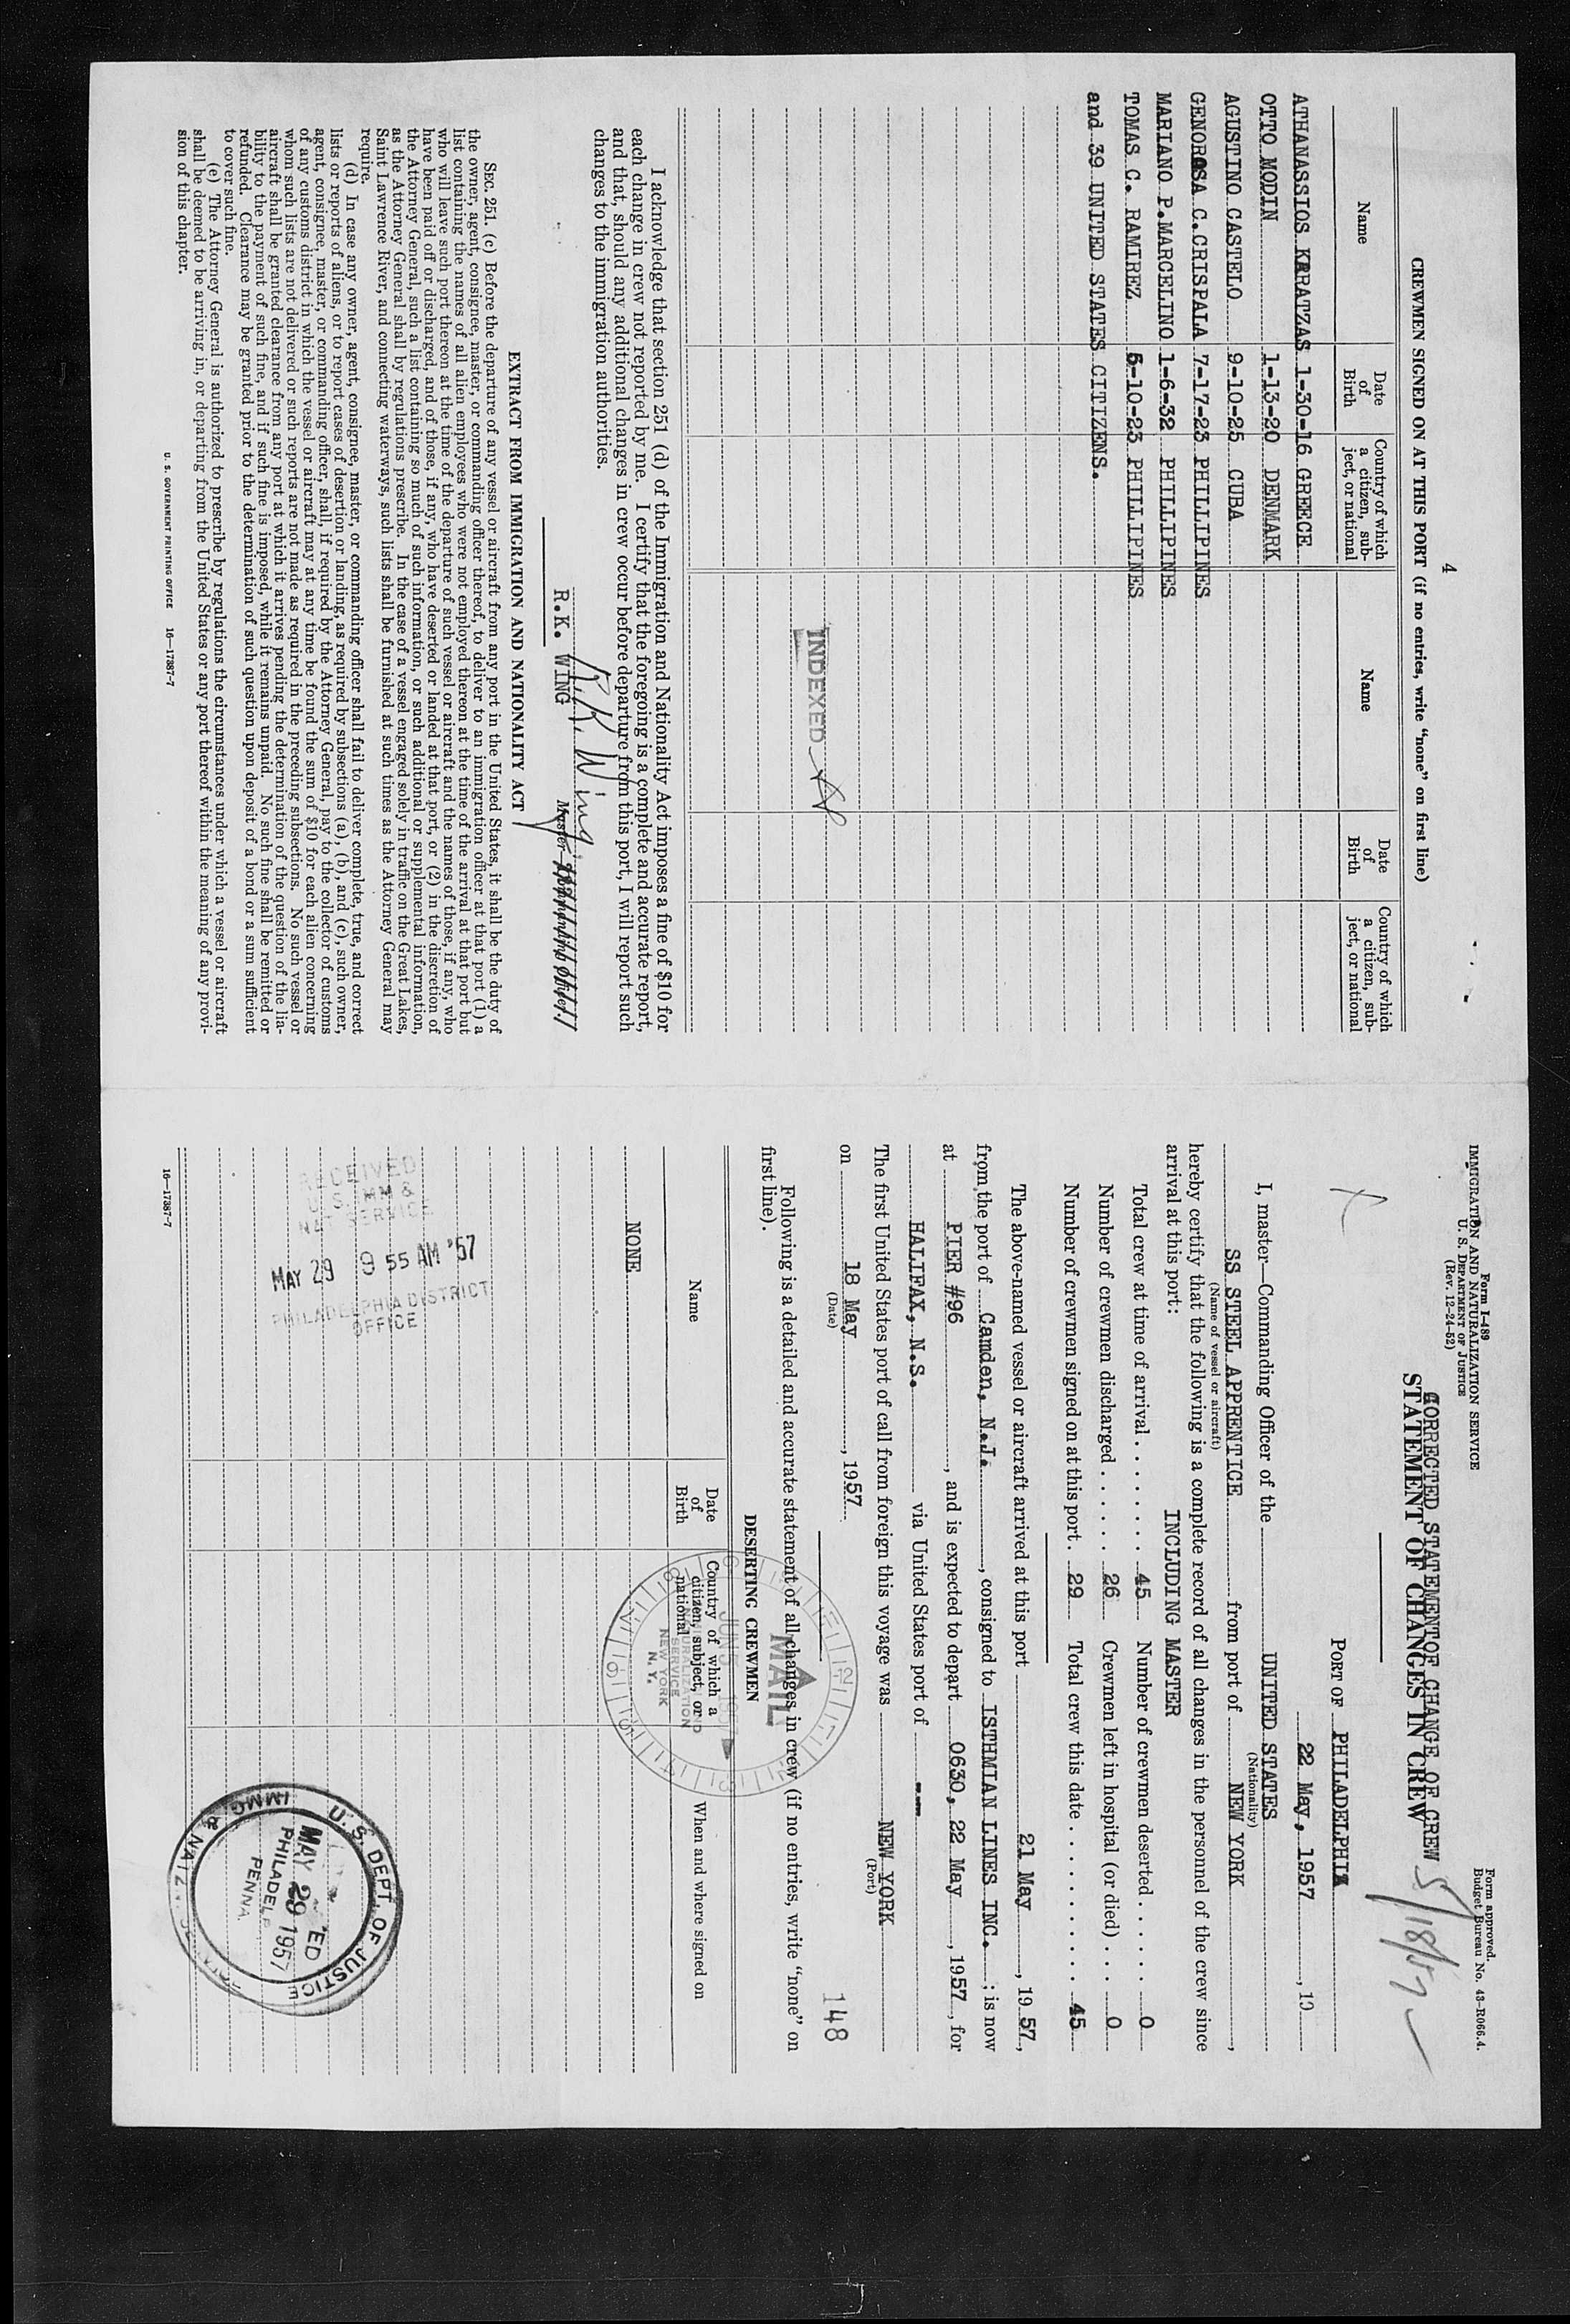 4
CREWMEN SIGNED ON AT THIS PORT (if no entries, write “none” on first line)
Name Date of Birth Country of which a citizen, sub- ject, or national Name Date of Birth Country of which a citizen, sub- ject, or national
ATHANASSIOS KARATZAS 1-30-16 GREECE
OTTO MODIN 1-13-20 DENMARK
AGUSTINO CASTELO 9-10-25 CUBA
GENOROSA C.CRISPALA 7-17-23 PHILLIPINES
MARIANO P.MARCELINO 1-6-32 PHILLIPINES
TOMAS C. RAMIREZ 5-10-23 PHILLIPINES
and 39 UNITED STATES CITIZENS.
INDEXED
I acknowledge that section 251 (d) of the Immigration and Nationality Act imposes a fine of $10 for
each change in crew not reported by me. I certify that the foregoing is a complete and accurate report,
and that, should any additional changes in crew occur before departure from this port, I will report such
changes to the immigration authorities.
R.K. Wing
R.K. WING Master
EXTRACT FROM IMMIGRATION AND NATIONALITY ACT
SEC. 251. (c) Before the departure of any vessel or aircraft from any port in the United States, it shall be the duty of
the owner, agent, consignee, master, or commanding officer thereof, to deliver to an immigration officer at that port (1) a
list containing the names of all alien employees who were not employed thereon at the time of the arrival at that port but
who will leave such port thereon at the time of the departure of such vessel or aircraft and the names of those, if any, who
have been paid off or discharged, and of those, if any, who have deserted or landed at that port, or (2) in the discretion of
the Attorney General, such a list containing so much of such information, or such additional or supplemental information,
as the Attorney General shall by regulations prescribe. In the case of a vessel engaged solely in traffic on the Great Lakes,
Saint Lawrence River, and connecting waterways, such lists shall be furnished at such times as the Attorney General may
require.
(d) In case any owner, agent, consignee, master, or commanding officer shall fail to deliver complete, true, and correct
lists or reports of aliens, or to report cases of desertion or landing, as required by subsections (a), (b), and (c), such owner,
agent, consignee, master, or commanding officer, shall, if required by the Attorney General, pay to the collector of customs
of any customs district in which the vessel or aircraft may at any time be found the sum of $10 for each alien concerning
whom such lists are not delivered or such reports are not made as required in the preceding subsections. No such vessel or
aircraft shall be granted clearance from any port at which it arrives pending the determination of the question of the lia-
bility to the payment of such fine, and if such fine is imposed, while it remains unpaid. No such fine shall be remitted or
refunded. Clearance may be granted prior to the determination of such question upon deposit of a bond or a sum sufficient
to cover such fine.
(e) The Attorney General is authorized to prescribe by regulations the circumstances under which a vessel or aircraft
shall be deemed to be arriving in, or departing from the United States or any port thereof within the meaning of any provi-
sion of this chapter.
U. S. GOVERNMENT PRINTING OFFICE 16—17387-7
Form I-489
IMMIGRATION AND NATURALIZATION SERVICE
U. S. DEPARTMENT OF JUSTICE
(Rev. 12-24-52)
Form approved.
Budget Bureau No. 43-R066.4.
CORRECTED STATEMENT OF CHANGE OF CREW 5/18/57
STATEMENT OF CHANGES IN CREW
PORT OF PHILADELPHIA
22 May, 1957, 19
I, master—Commanding Officer of the UNITED STATES
(Nationality)
SS STEEL APPRENTICE from port of NEW YORK,
(Name of vessel or aircraft)
hereby certify that the following is a complete record of all changes in the personnel of the crew since
arrival at this port: INCLUDING MASTER
Total crew at time of arrival 45 Number of crewmen deserted 0
Number of crewmen discharged 26 Crewmen left in hospital (or died) 0
Number of crewmen signed on at this port 29 Total crew this date 45
The above-named vessel or aircraft arrived at this port 21 May, 1957,
from the port of Camden, N.J., consigned to ISTHMIAN LINES INC.; is now
at PIER #96, and is expected to depart 0630, 22 May, 1957, for
HALIFAX, N.S. via United States port of ---
The first United States port of call from foreign this voyage was NEW YORK
(Port)
on 18 May, 1957.
(Date)
148
Following is a detailed and accurate statement of all changes in crew (if no entries, write “none” on
first line).
MAIL
DESERTING CREWMEN
Name Date of Birth Country of which a citizen, subject, or national When and where signed on
NATURALIZATION
SERVICE
NEW YORK
N. Y.
NONE
RECEIVED
U. S. IMM &
NAT SERVICE
MAY 29 9 55 AM '57
PHILADELPHIA DISTRICT
OFFICE
U. S. DEPT. OF JUSTICE
IMMG & NATZ.
MAY 29 1957
PENNA.
16—17387-7